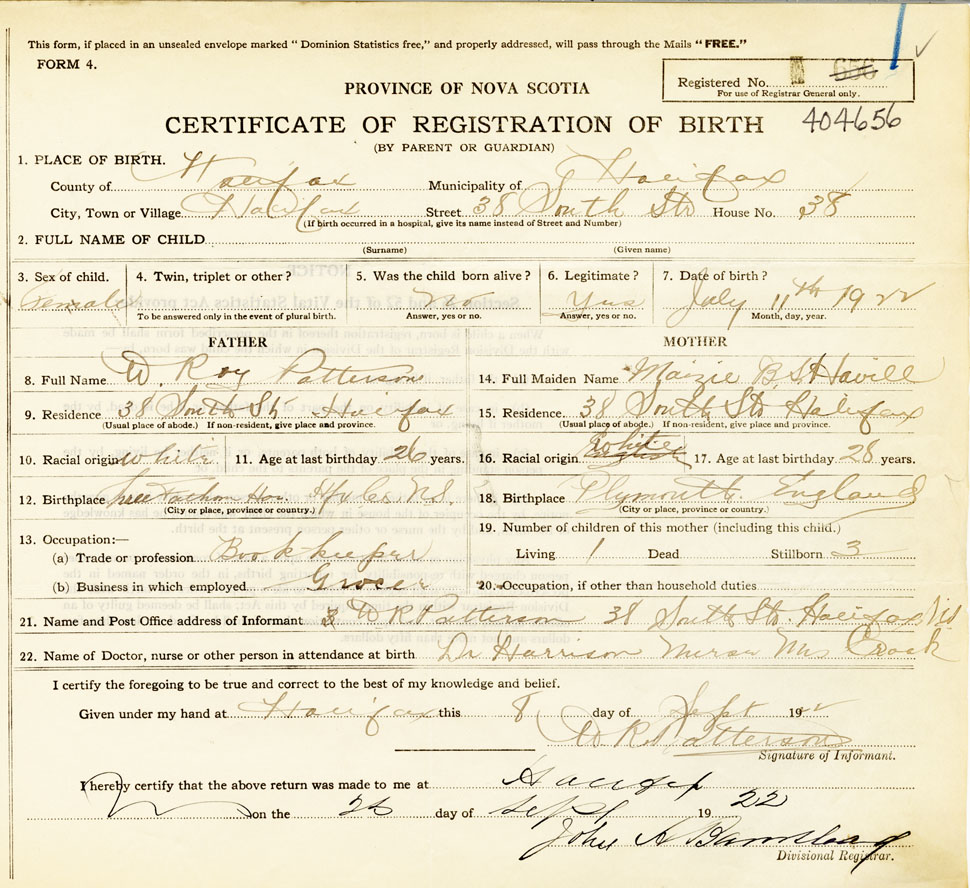 This form, if placed in an unsealed envelope marked “Dominion Statistics free,” and properly addressed, will pass through the Mails “FREE.”
FORM 4.
Registered No. 656
For use of Registrar General only.
PROVINCE OF NOVA SCOTIA
404656
CERTIFICATE OF REGISTRATION OF BIRTH
(BY PARENT OR GUARDIAN)
1. PLACE OF BIRTH.
County of Halifax Municipality of Halifax
City, Town or Village Halifax Street 38 South Str House No. 38
(If birth occurred in a hospital, give its name instead of Street and Number)
2. FULL NAME OF CHILD
(Surname) (Given name)
3. Sex of child. 4. Twin, triplet or other? 5. Was the child born alive? 6. Legitimate? 7. Date of birth?
Female No Yes July 11th 1922
To be answered only in the event of plural birth. Answer, yes or no. Answer, yes or no. Month, day, year.
FATHER MOTHER
8. Full Name W. Roy Patterson 14. Full Maiden Name Maizie B. S. Havill
9. Residence 38 South St Halifax 15. Residence. 38 South Str Halifax
(Usual place of abode.) If non-resident, give place and province. (Usual place of abode.) If non-resident, give place and province.
10. Racial origin White 11. Age at last birthday 26 years. 16. Racial origin White 17. Age at last birthday 28 years.
12. Birthplace Fathom Hfx Co. N.S. 18. Birthplace Plymouth. England
(City or place, province or country.) (City or place, province or country.)
19. Number of children of this mother (including this child.)
13. Occupation:—
(a) Trade or profession Bookkeeper Living 1 Dead Stillborn 3
(b) Business in which employed Grocer 20. Occupation, if other than household duties
21. Name and Post Office address of Informant W R Patterson 38 South Str. Halifax NS
22. Name of Doctor, nurse or other person in attendance at birth Dr Harrison Nurse Mrs Crook
I certify the foregoing to be true and correct to the best of my knowledge and belief.
Given under my hand at Halifax this 8 day of Sept 1922
W R Patterson
Signature of Informant.
I hereby certify that the above return was made to me at Halifax
on the day of Sept 1922
John A Barnstead
Divisional Registrar.